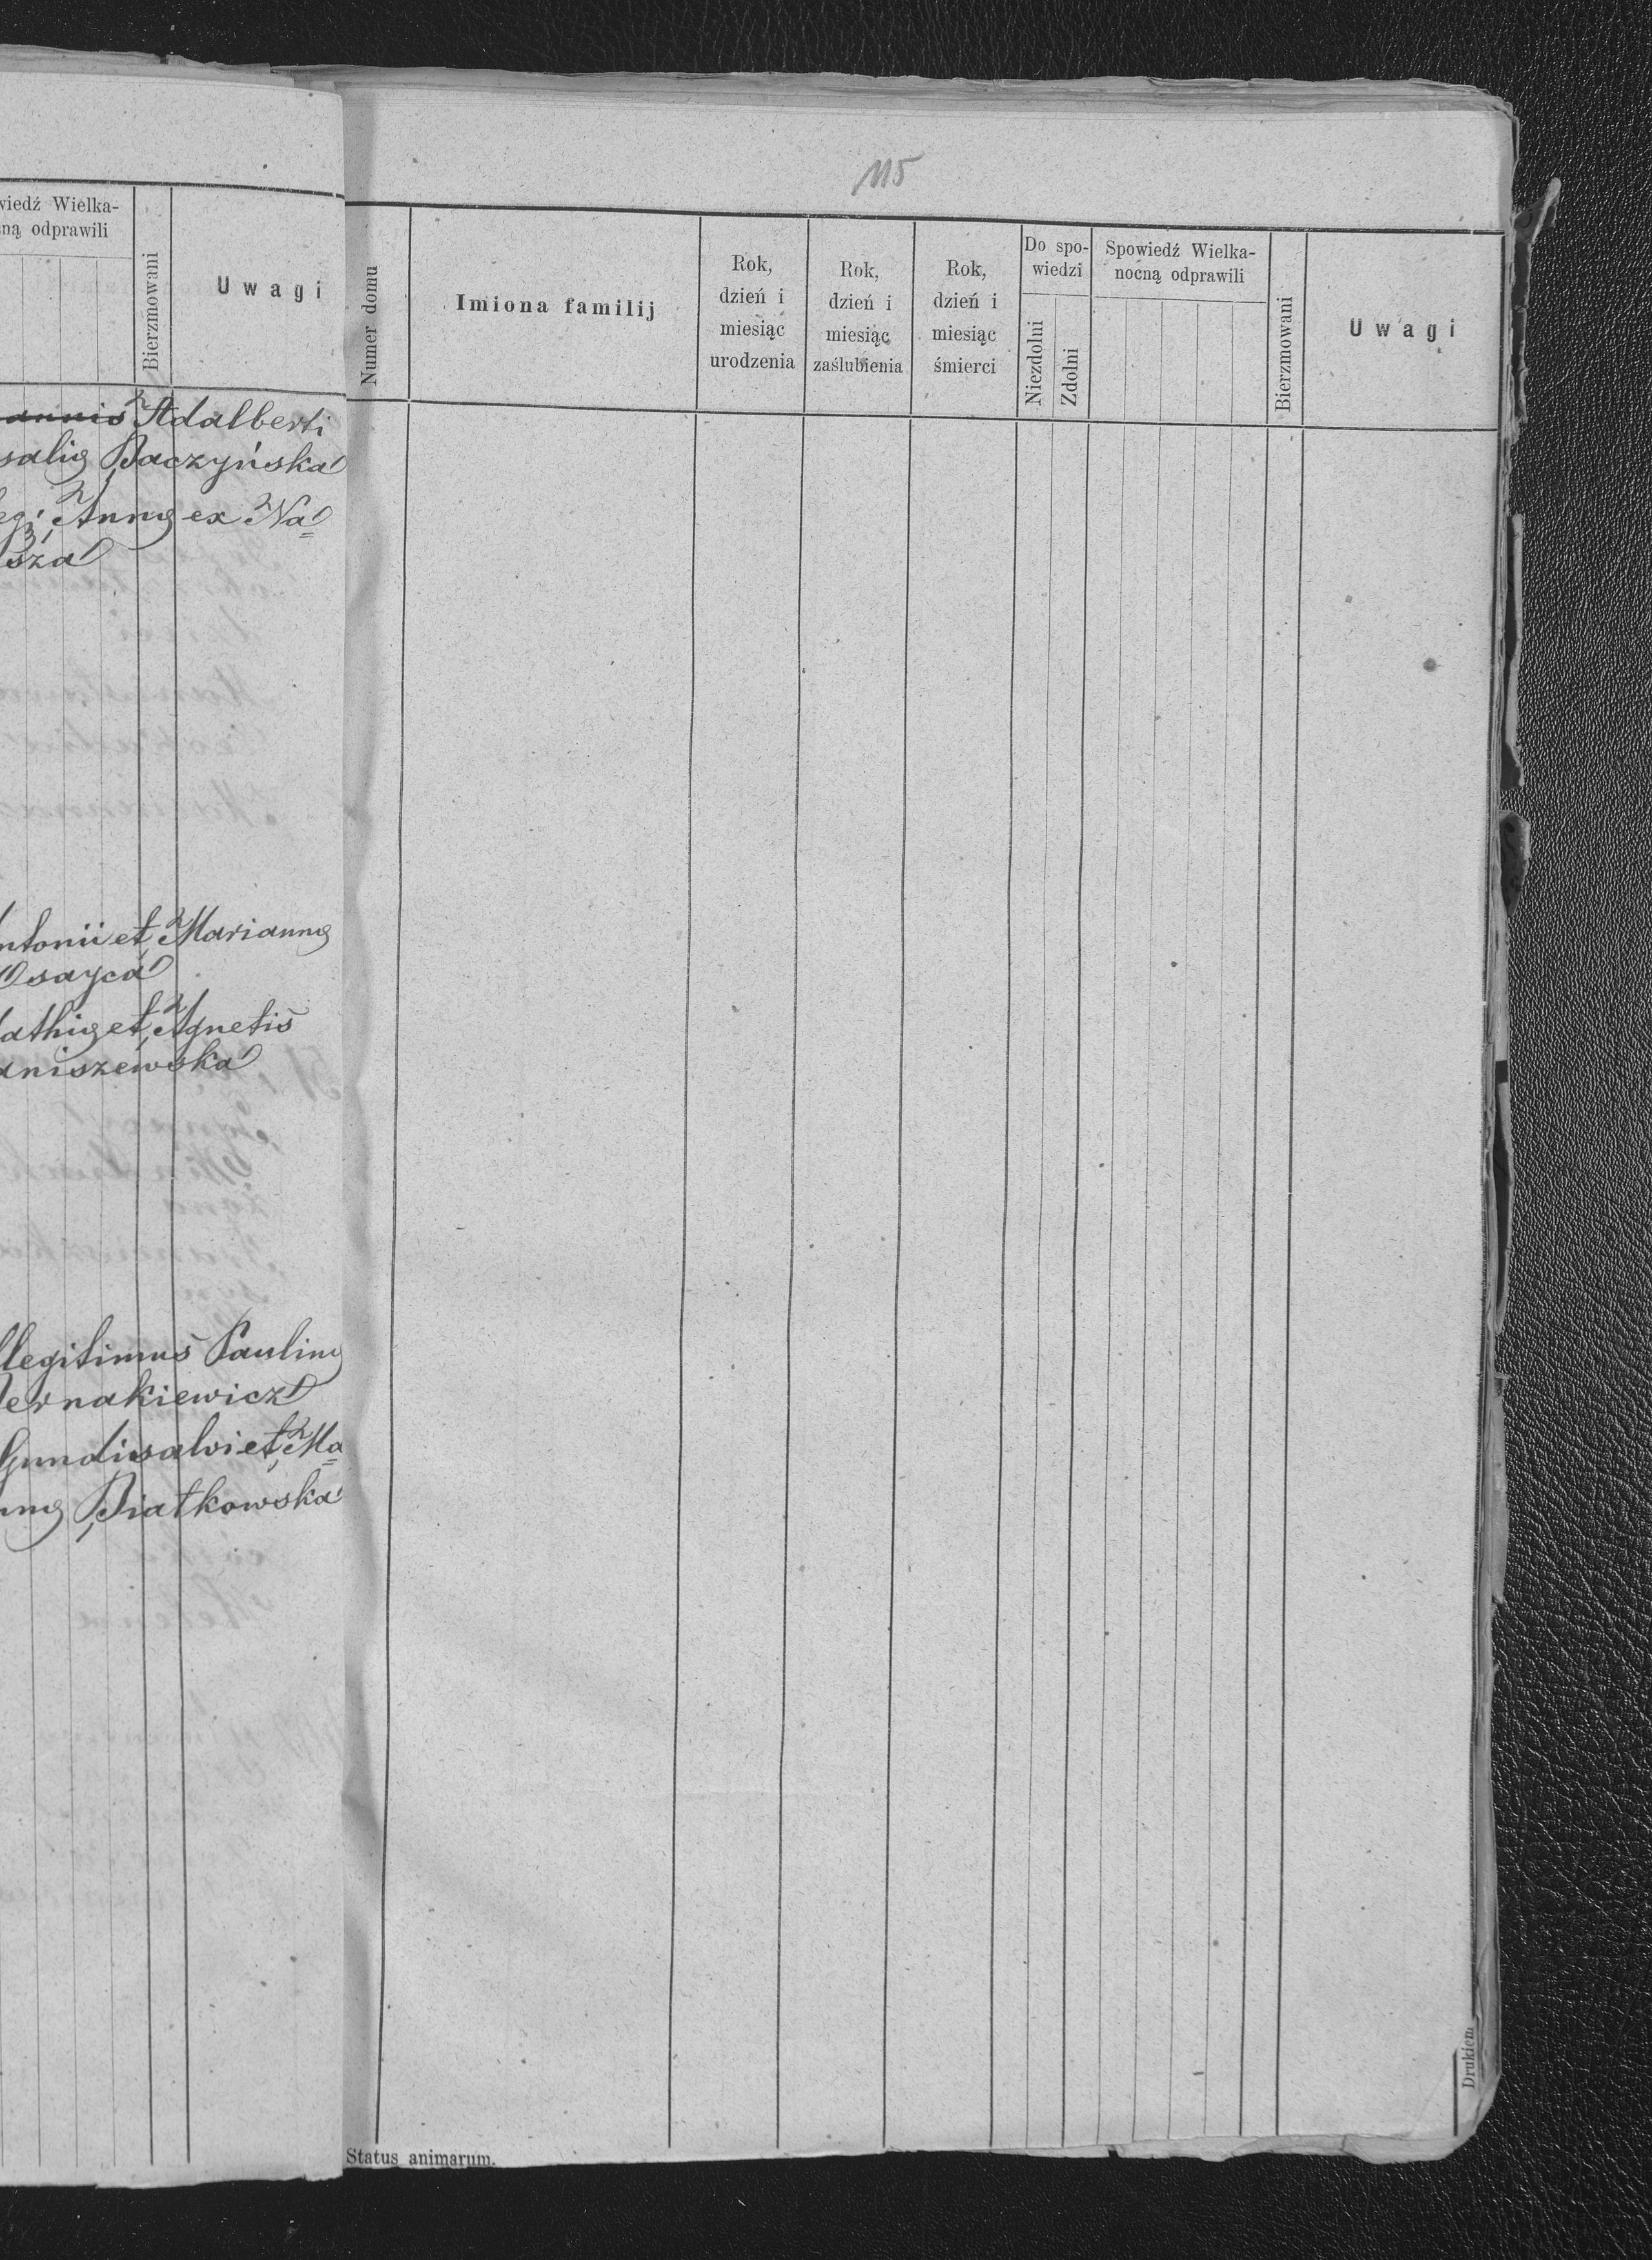 wiedź Wielka-
ną odprawili
Bierzmowani
Uwagi
annis Adalberti
salię Baczyńska
Annę ex Na=
sza
ntonii et Mariannę
athię et Agnetis
aniszewska
llegitimus Paulinę
ernakiewicz
Gundisalvi et Ma=
nnę Białkowska
115
Numer domu
Imiona familij
Rok,
dzień i
miesiąc
urodzenia
Rok,
dzień i
miesiąc
zaślubienia
Rok,
dzień i
miesiąc
śmierci
Do spo-
wiedzi
Niezdolni
Zdolni
Spowiedź Wielka-
nocną odprawili
Bierzmowani
Uwagi
Status animarum.
Drukiem